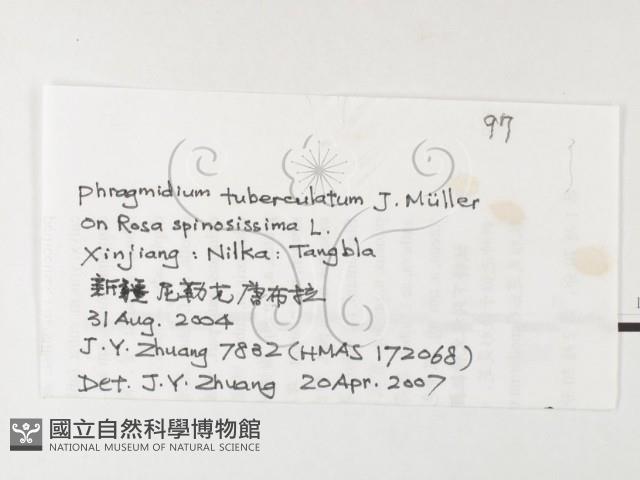 97
Phragmidium tuberculatum J. Müller
on Rosa spinosissima L.
Xinjiang : Nilka : Tangbla
新疆尼勒克唐布拉
31 Aug. 2004
J. Y. Zhuang 7832 (HMAS 172068)
Det. J. Y. Zhuang 20 Apr. 2007
國立自然科學博物館
NATIONAL MUSEUM OF NATURAL SCIENCE